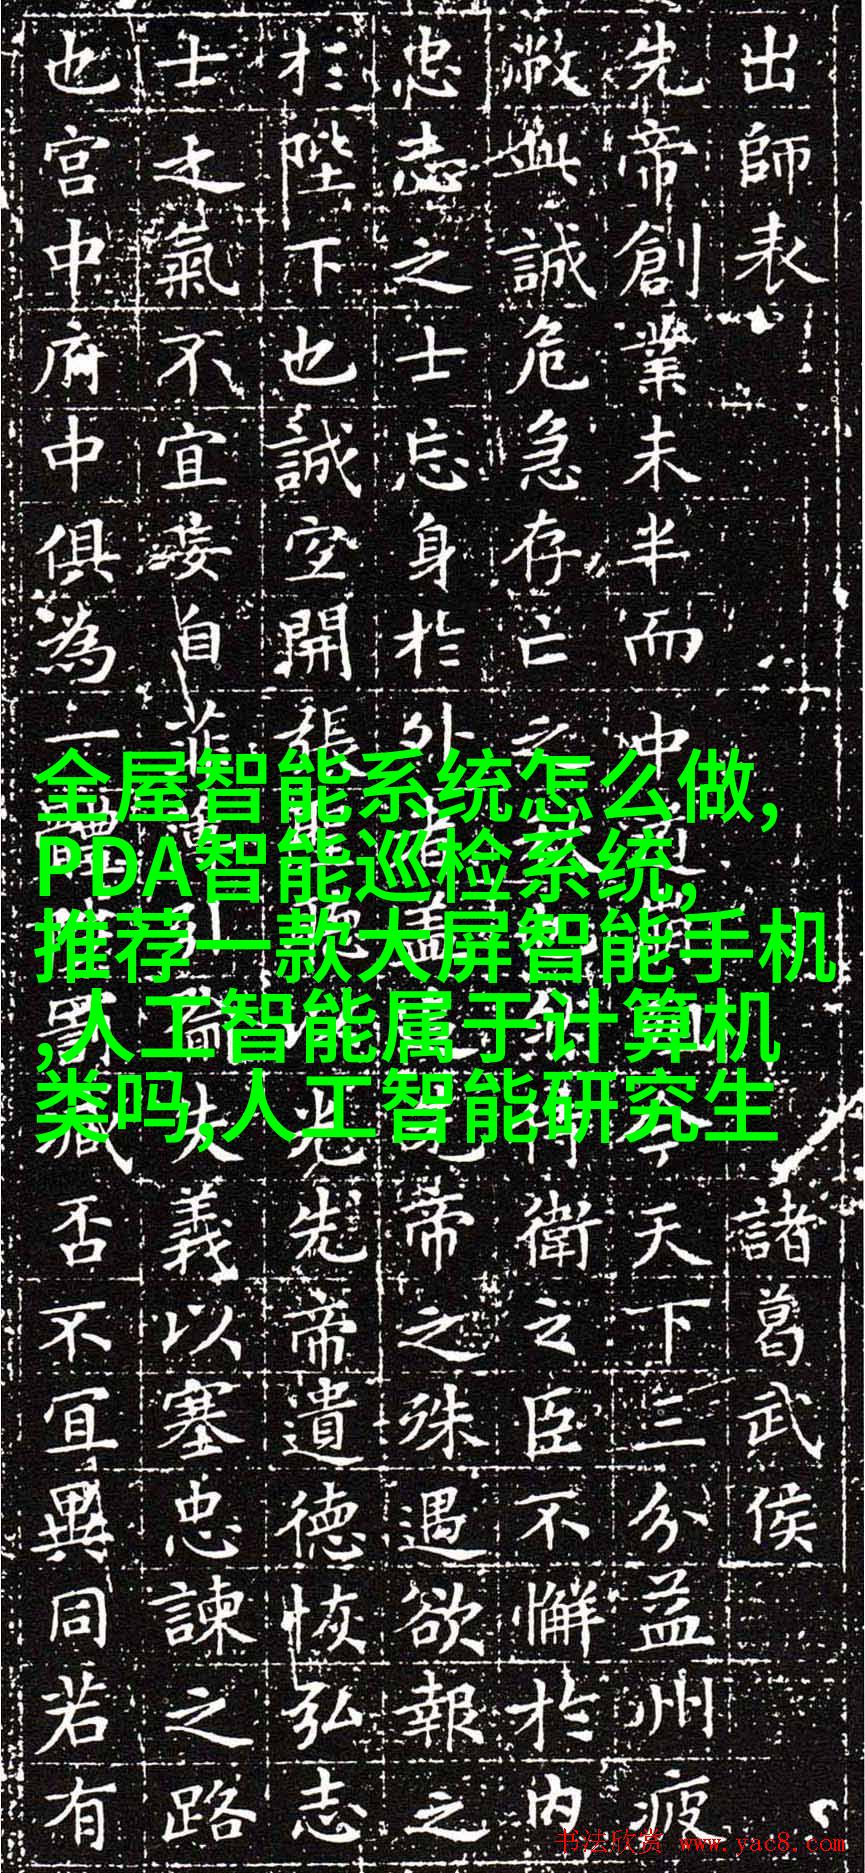 出師表 諸葛武侯
先帝創業未半而中道今天下三分益州疲
敝此誠危急存亡之侍衛之臣不懈於內
忠志之士忘身於外者蓋追先帝之殊遇欲報之
於陛下也誠宜開張聖聽以光先帝遺德恢弘志
士之氣不宜妄自菲薄引喻失義以塞忠諫之路
也宮中府中俱為一體陟罰臧否不宜異同若有
全屋智能系统怎么做,
PDA智能巡检系统,
推荐一款大屏智能手机
,人工智能属于计算机
类吗,人工智能研究生
书法欣赏 www.yac8.com